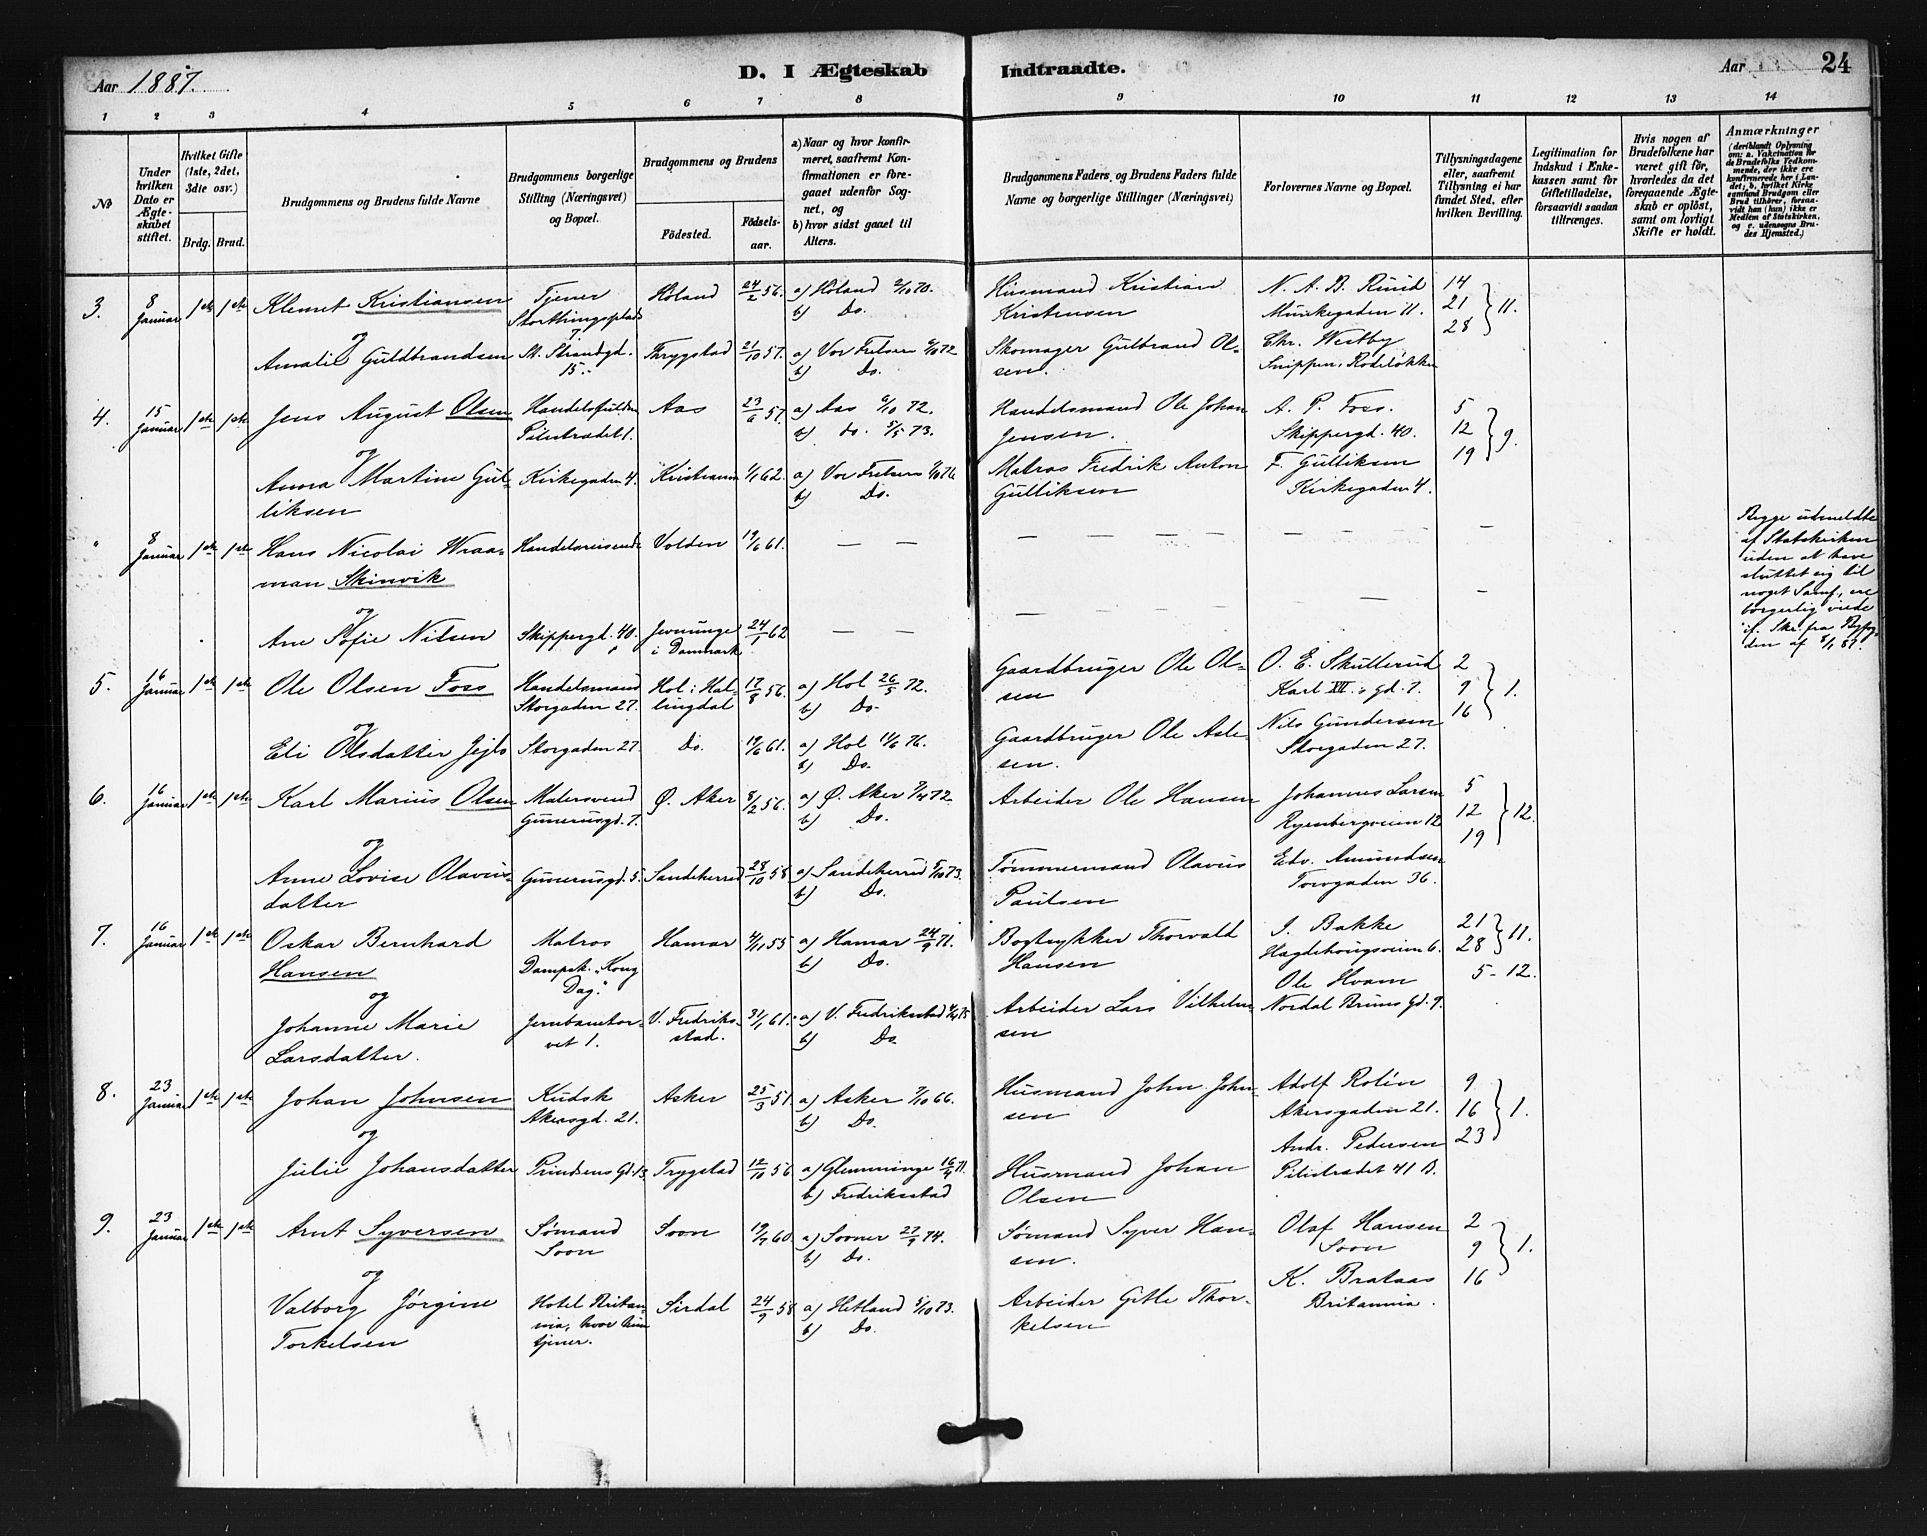 Aar 1887.
D. I Ægteskab Indtraadte.
Aar
24
1 2 3 4 5 6 7 8 9 10 11 12 13 14
No
Under hvilken Dato er Ægteskabet stiftet.
Hvilket Gifte (1ste, 2det, 3die osv.)
Brdg. Brud.
Brudgommens og Brudens fulde Navne
Brudgommens borgerlige Stilling (Næringsvei) og Bopæl.
Brudgommens og Brudens
Födested. Födselsaar.
a) Naar og hvor konfirmeret, saafremt Konfirmationen er foregaaet udenfor Sognet, og
b) hvor sidst gaaet til Alters.
Brudgommens Faders og Brudens Faders fulde Navne og borgerlige Stillinger (Næringsvei)
Forlovernes Navne og Bopæl.
Tillysningsdagene eller, saafremt Tillysning ei har fundet Sted, efter hvilken Bevilling.
Legitimation for Indskud i Enkekassen samt for Giftetilladelse, forsaavidt saadan tiltrænges.
Hvis nogen af Brudefolkene har været gift för, hvorledes da det foregaaende Ægteskab er oplöst, samt om lovligt Skifte er holdt.
Anmærkninger (deriblandt Oplysning om: a. Vakcination for de Brudefolks Vedkommende, der ikke ere konfirmerede her i Landet; b. hvilket Kirkesamfund Brudgom eller Brud tilhörer, forsaavidt han (hun) ikke er Medlem af Statskirken, og c. udensogns Brudes Hjemsted.)
3. 8 Januar 1ste 1ste Klemet Kristiansen Tjener Storthingsplads 7. Höland 24/2 56. a) Höland 2/10 70. b) Do. Husmand Kristian Kristensen N. A. B. Ruud Munkegaden 11. 14 21 28 } 11.
og
Amalie Guldbrandsen St. Strandgd. 15. Thrygstad 21/10 57. a) Vor Frelser 6/10 72 b) Do. Skomager Gulbrand Olsen. Chr. Westby Snippen, Rodeløkken
4. 15 Januar 1ste 1ste Jens August Olsen Handelsfuldm. Pilestrædet 1. Aas 23/6 57. a) Aas 6/10 72. b) do. 5/5 73. Handelsmand Ole Johan Jensen. A. P. Foss. Skippergd. 40. 5 12 19 } 9.
og
Anna Martine Gulliksen Kirkegaden 4. Kristiania 1/1 62. a) Vor Frelsers 1/10 76 b) Do. Matros Fredrik Anton Gulliksen F. Gulliksen Kirkegaden 4.
" 8 Januar 1ste 1ste Hans Nicolai Wraaman Skinvik Handelsreisende Volden 19/6 61. — — — — — — —
og
Ane Sofie Nilsen Skippergd. 40. Jevnunge i Danmark 24/1 62 — — — — — — —
Begge udmeldte
af Statskirken
uden at have
sluttet sig til
noget Samf., ere
borgerlig viede
if. Skr. fra Byfogden
af 8/1 87.
5. 16 Januar 1ste 1ste Ole Olsen Foss Handelsmand Storgaden 27. Hol i Hallingdal 17/8 56. a) Hol 26/5 72. b) Do. Gaardbruger Ole Olsen O. E. Skullerud Karl XII.s gd. 7. 2 9 16 } 1.
og
Eli Olsdatter Jejlo Storgaden 27. Do. 19/6 61. a) Hol 11/6 76. b) Do. Gaardbruger Ole Aslesen. Nils Gundersen Storgaden 27.
6. 16 Januar 1ste 1ste Karl Marius Olsen Malersvend Gunerusgd. 7. Ø. Aker 8/2 56. a) Ø. Aker 7/4 72 b) Do. Arbeider Ole Hansen Johannes Larsen Ryenbergveien 12 5 12 19 } 12.
og
Anne Lovise Olavusdatter Gunerusgd. 5. Sandeherred 28/10 58 a) Sandeherred 5/10 73. b) Do. Tømmermand Olavus Paulsen Edv. Amundsen Torvgaden 36.
7. 16 Januar 1ste 1ste Oskar Bernhard Hansen Matros Dampsk. „Kong Dag." Hamar 4/11 55 a) Hamar 24/9 71. b) Do. Bogtrykker Thorvald Hansen J. Bakke Hagdehougsveien 6. 21 28 } 11. 5 - 12.
og
Johanne Marie Larsdatter. Jernbanetorvet 1. V. Fredriksstad. 31/1 61. a) V. Fredriksstad b) Do. Arbeider Lars Vilhelmsen Ole Hvam Nordal Bruns Gd. 9.
8. 23 Januar 1ste 1ste Johan Johnsen Kudsk Akersgd. 21. Asker 25/3 51. a) Asker 7/10 66. b) Do. Husmand John Johnsen Adolf Rolén Akersgaden 21. 9 16 23 } 1.
og
Julie Johansdatter Prindsens Gd. 13 Trygstad 12/10 56 a) Glemminge 16/9 71. b) Fredriksstad Husmand Johan Olsen Andr. Pedersen Pilestrædet 41 B.
9. 23 Januar 1ste 1ste Arnt Syversen Sømand Soon Soon 19/7 60. a) Sooner 27/9 74. b) Do. Sømand Syver Hansen. Olaf Hansen Soon 2 9 16 } 1.
og
Valborg Jørgine Torkelsen Hotel Britannia, hvor hun tjener. Sirdal 24/9 58 a) Hetland 5/10 73. b) Do. Arbeider Gitle Thorkelsen K. Brataas Britannia.